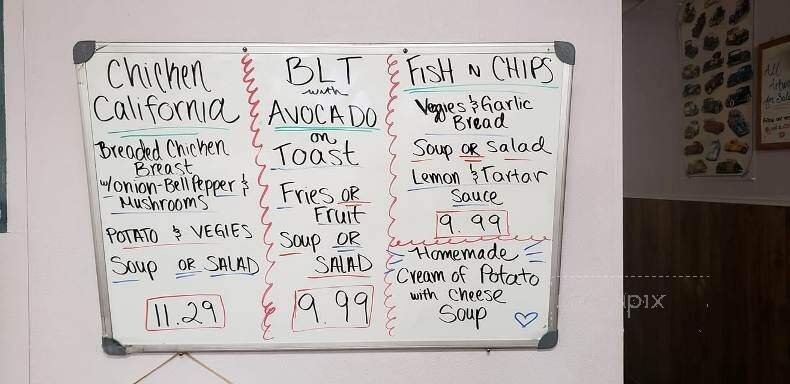 Chicken
California
Breaded Chicken
Breast
w/onion-Bell Pepper &
Mushrooms
POTATO & VEGIES
Soup OR SALAD
11.29
BLT
with
AVOCADO
on
Toast
Fries OR
Fruit
Soup OR
SALAD
9.99
FISH N CHIPS
Vegies & Garlic
Bread
Soup OR Salad
Lemon & Tartar
Sauce
9.99
Homemade
Cream of Potato
with cheese
Soup
All